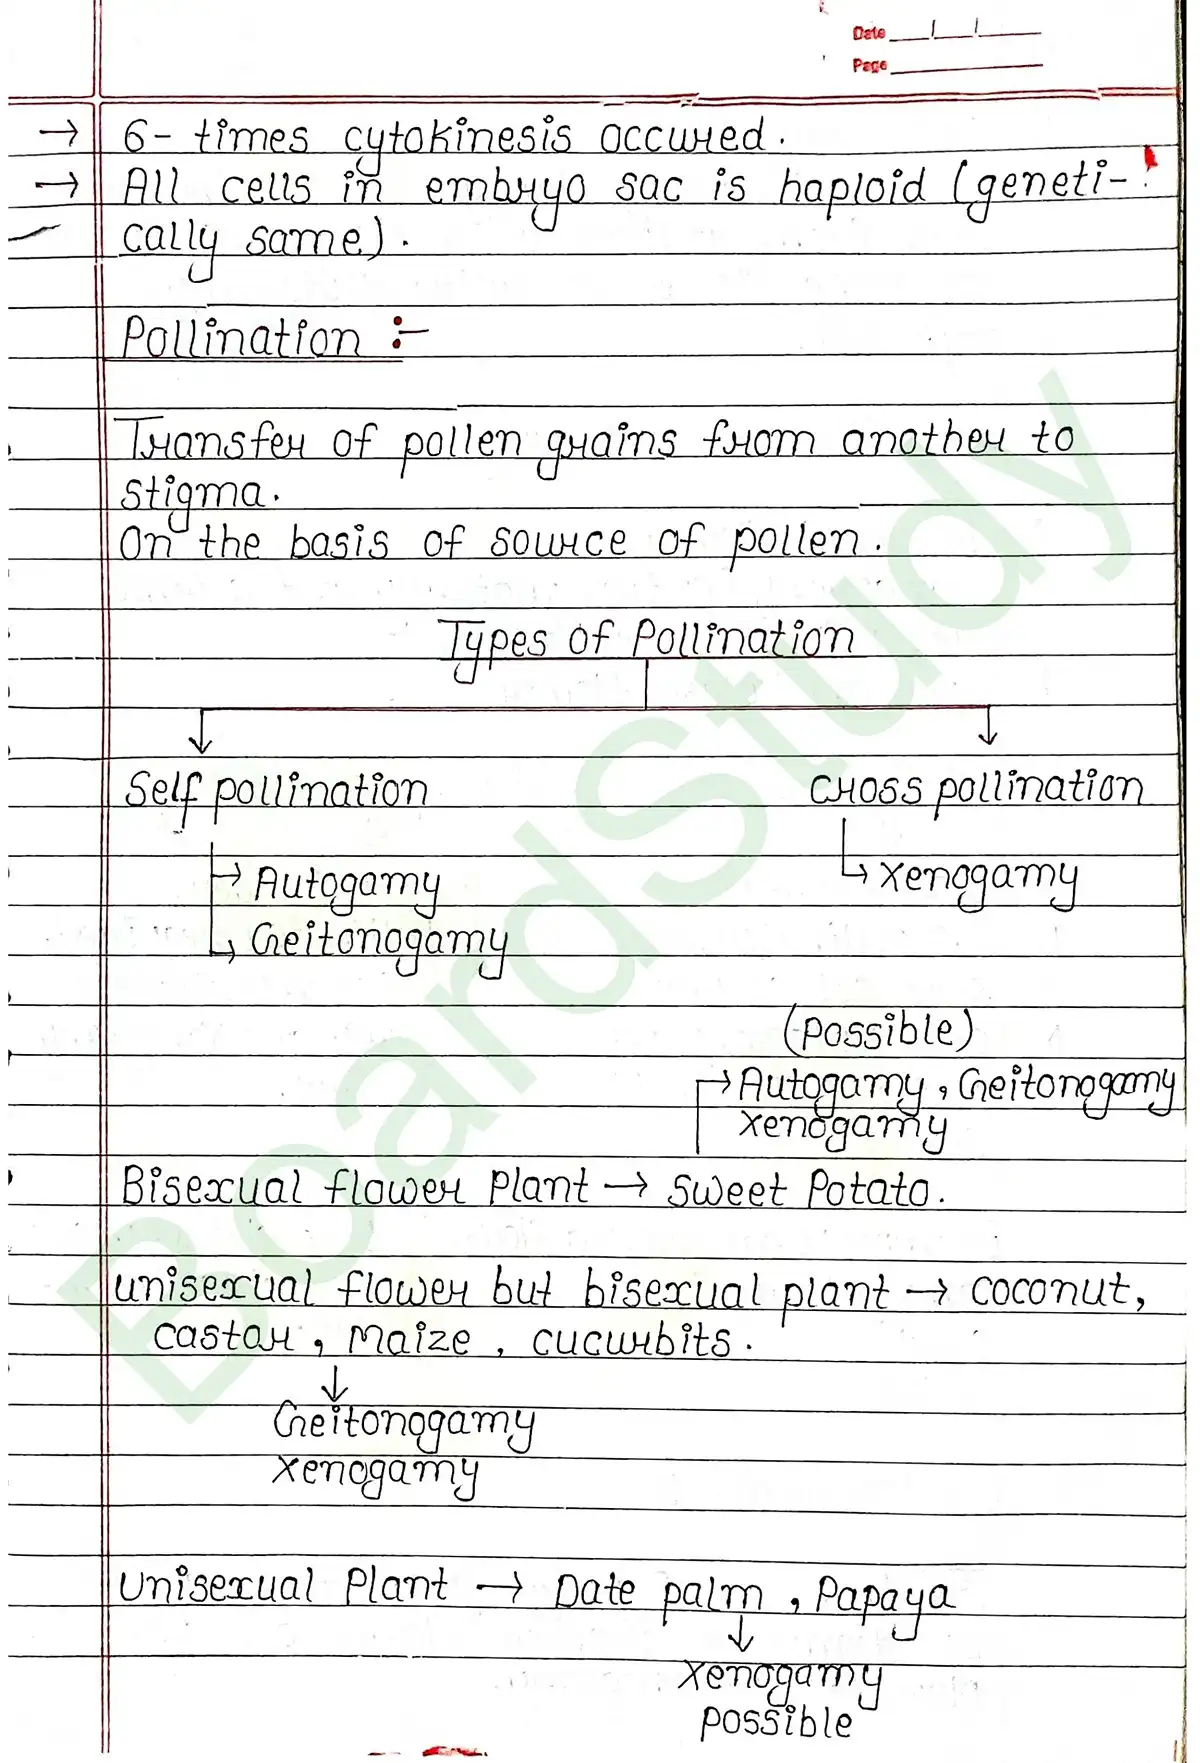 Date
Page
→ 6- times cytokinesis occured.
→ All cells in embryo sac is haploid (geneti-
cally same).
Pollination :-
Transfer of pollen grains from another to
stigma.
On the basis of source of pollen.
Types of Pollination
Self pollination
cross pollination
→ Autogamy
→ Geitonogamy
→ Xenogamy
(Possible)
→ Autogamy, Geitonogamy
Xenogamy
Bisexual flower Plant → Sweet Potato.
Unisexual flower but bisexual plant → coconut,
castor, Maize, cucurbits.
↓
Geitonogamy
Xenogamy
Unisexual Plant → Date palm, Papaya
↓
Xenogamy
Possible
BoardStudy